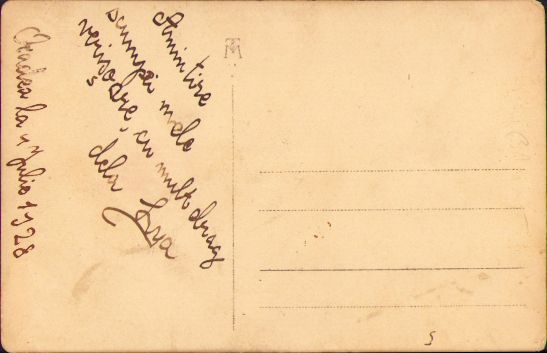 Amintire
scumpei mele
verișoare, cu mult drag
dela Eva
Oradea la 17 Julio 1928
5